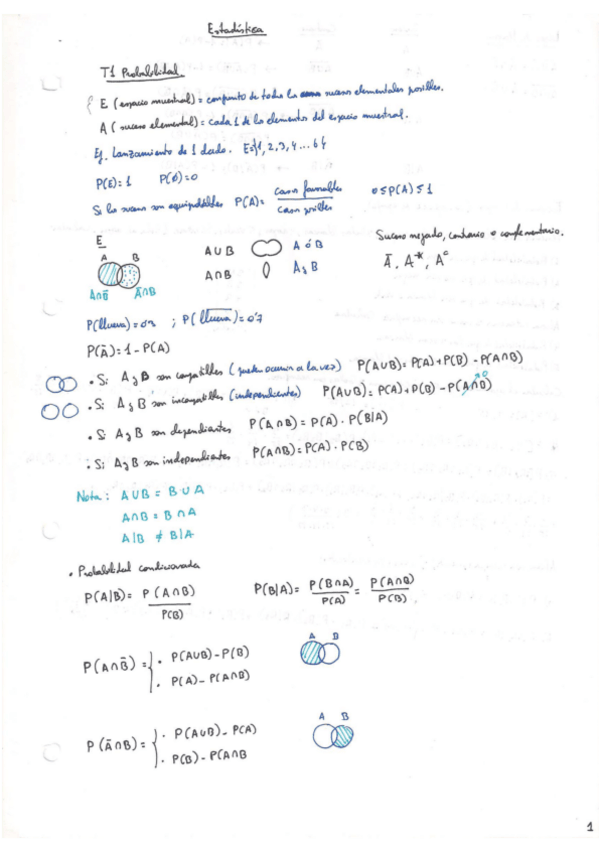 Estadística
T1 Probabilidad.
E (espacio muestral) = conjunto de todos los sucesos elementales posibles.
A (suceso elemental) = cada 1 de los elementos del espacio muestral.
Ej. Lanzamiento de 1 dado. E={1, 2, 3, 4 ... 6}
P(E)= 1 P(Ø)=0
Si los sucesos son equiprobables P(A)= casos favorables / casos posibles 0≤P(A)≤1
E
A B
A∩B̄ Ā∩B
A∪B A ó B
A∩B A y B
Suceso negado, contrario o complementario.
Ā, A*, Aᶜ
P(llueva)=0'3 ; P(l̅l̅u̅e̅v̅a̅)=0'7
P(Ā)= 1 - P(A)
• Si A y B son compatibles (pueden ocurrir a la vez) P(A∪B)= P(A)+P(B) - P(A∩B)
• Si A y B son incompatibles (independientes) P(A∪B)= P(A)+P(B) - P(A∩B) → 0
• Si A y B son dependientes P(A∩B) = P(A) · P(B|A)
• Si A y B son independientes P(A∩B)=P(A) · P(B)
Nota: A∪B = B∪A
A∩B = B∩A
A|B ≠ B|A
• Probabilidad condicionada
P(A|B)= P(A∩B) / P(B) P(B|A)= P(B∩A) / P(A) = P(A∩B) / P(B)
P(A∩B̄) = { · P(A∪B)-P(B)
· P(A)-P(A∩B)
A B
P(Ā∩B)= { · P(A∪B)-P(A)
· P(B)-P(A∩B
A B
1